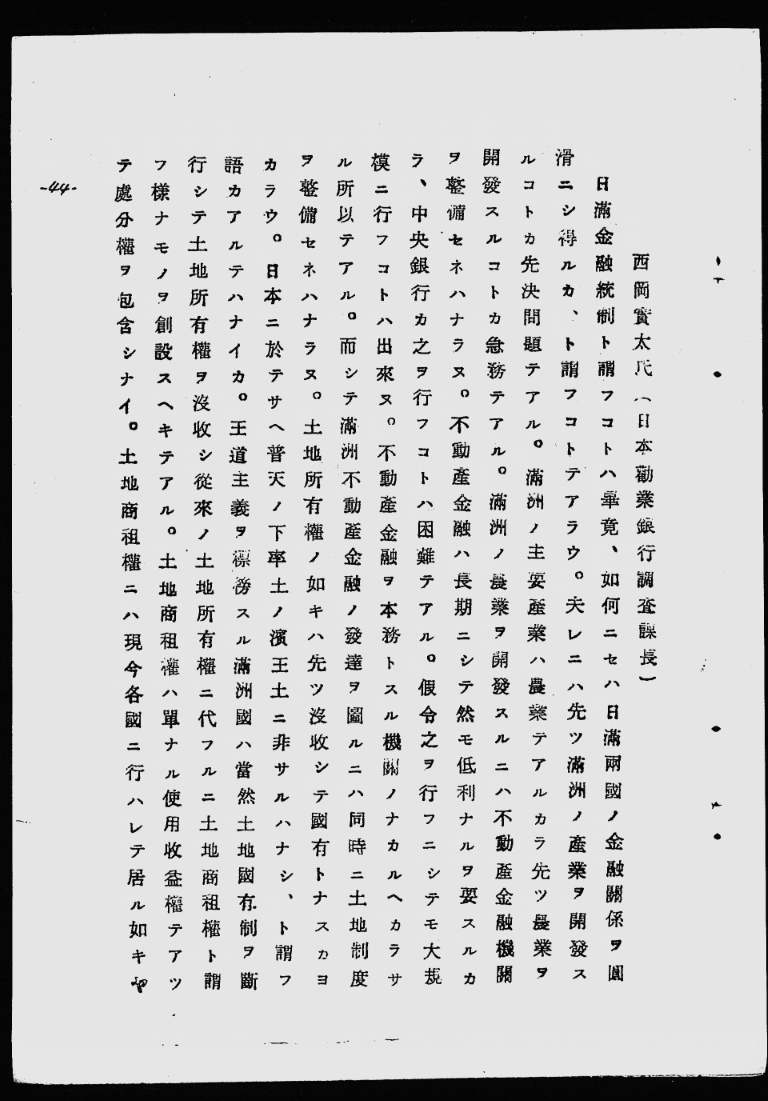 西岡實太氏（日本勸業銀行調査課長）
日滿金融統制ト謂フコトハ畢竟、如何ニセハ日滿兩國ノ金融關係ヲ圓
滑ニシ得ルカ、ト謂フコトテアラウ。夫レニハ先ツ滿洲ノ產業ヲ開發ス
ルコトカ先決問題テアル。滿洲ノ主要產業ハ農業テアルカラ先ツ農業ヲ
開發スルコトカ急務テアル。滿洲ノ農業ヲ開發スルニハ不動產金融機關
ヲ整備セネハナラヌ。不動產金融ハ長期ニシテ然モ低利ナルヲ要スルカ
ラ、中央銀行カ之ヲ行フコトハ困難テアル。假令之ヲ行フニシテモ大規
模ニ行フコトハ出來ヌ。不動產金融ヲ本務トスル機關ノナカルヘカラサ
ル所以テアル。而シテ滿洲不動產金融ノ發達ヲ圖ルニハ同時ニ土地制度
ヲ整備セネハナラヌ。土地所有權ノ如キハ先ツ沒收シテ國有トナスカヨ
カラウ。日本ニ於テサヘ普天ノ下率土ノ濱王土ニ非サルハナシ、ト謂フ
語カアルテハナイカ。王道主義ヲ標榜スル滿洲國ハ當然土地國有制ヲ斷
行シテ土地所有權ヲ沒收シ從來ノ土地所有權ニ代フルニ土地商租權ト謂
フ樣ナモノヲ創設スヘキテアル。土地商租權ハ單ナル使用收益權テアツ
テ處分權ヲ包含シナイ。土地商租權ニハ現今各國ニ行ハレテ居ル如キ
-44-